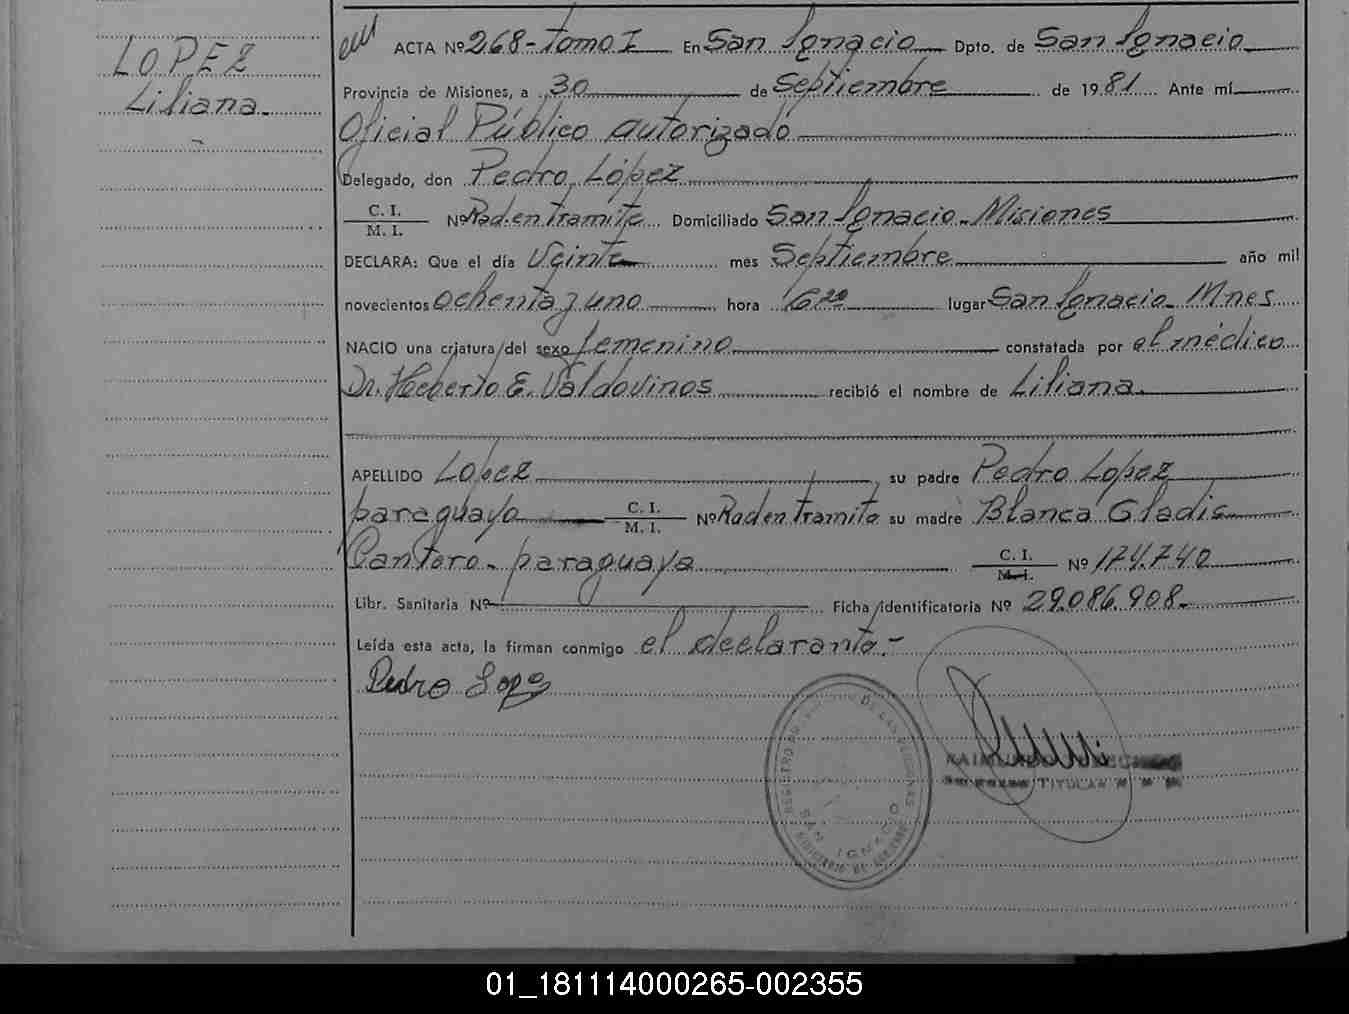 LOPEZ
Liliana.
ACTA Nº 268-Tomo I En San Ignacio Dpto. de San Ignacio
Provincia de Misiones, a 30 de Septiembre de 1981 Ante mí
Oficial Público autorizado
Delegado, don Pedro López
C. I.
M. I. Nº Rad.en tramite Domiciliado San Ignacio-Misiones
DECLARA: Que el día Veinte mes Septiembre año mil
novecientos ochenta y uno hora lugar San Ignacio-Mnes
NACIO una criatura del sexo femenino constatada por el médico
Dr. Heberto E. Valdovinos recibió el nombre de Liliana.
APELLIDO Lopez su padre Pedro Lopez
paraguayo C. I.
M. I. Nº Rad en tramite su madre Blanca Gladis
Cantero- paraguaya C. I.
M. I. Nº 174.740
Libr. Sanitaria Nº Ficha identificatoria Nº 29.086.908-
Leída esta acta, la firman conmigo el declarante.-
Pedro Lopez
REGISTRO DE LAS PERSONAS
SAN IGNACIO
MINISTERIO DE GOBIERNO
TITULAR
01_181114000265-002355